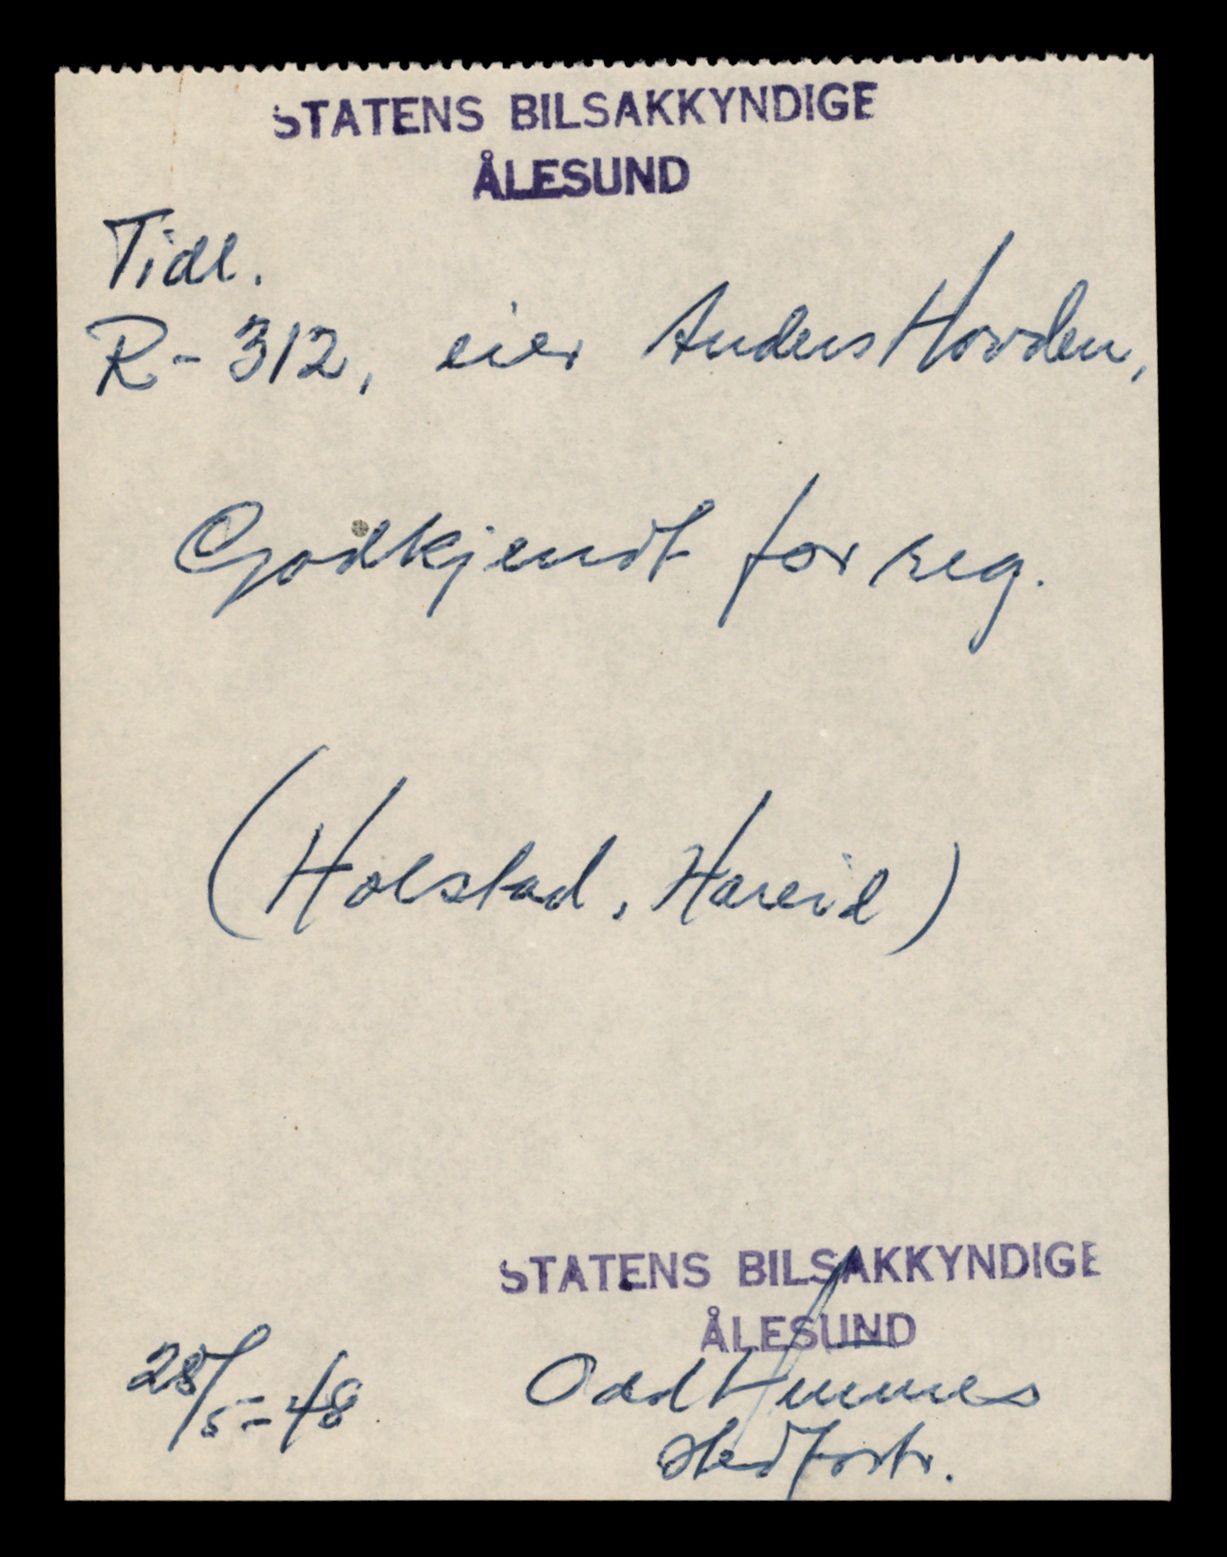 STATENS BILSAKKYNDIGE
ÅLESUND
Tidl.
R-312, eier Anders Hovden,
Godkjendt for reg.
(Holstad, Hareid)
STATENS BILSAKKYNDIGE
ÅLESUND
28/5-48 Odd
stedfortr.